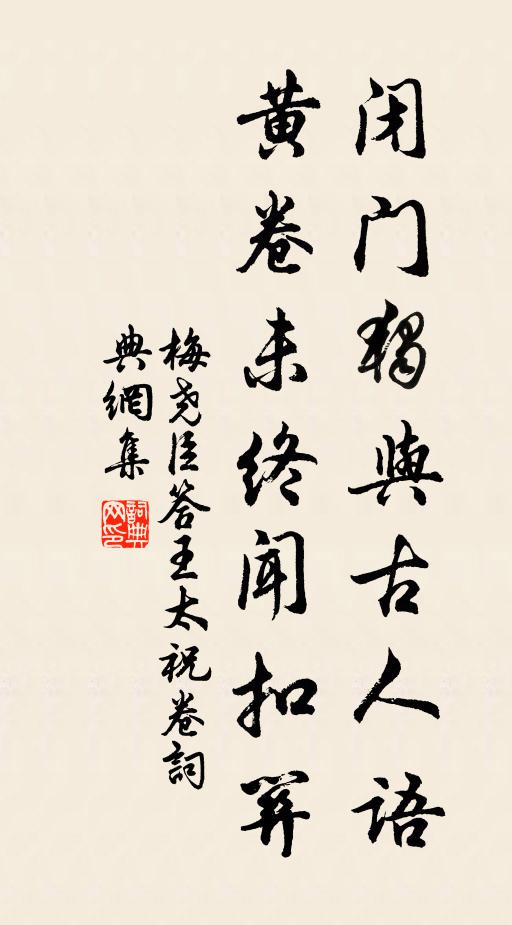 闭门独與古人语
黄卷未终闻扣羿
梅尧臣答王太祝卷詞
典網集
詞典网印